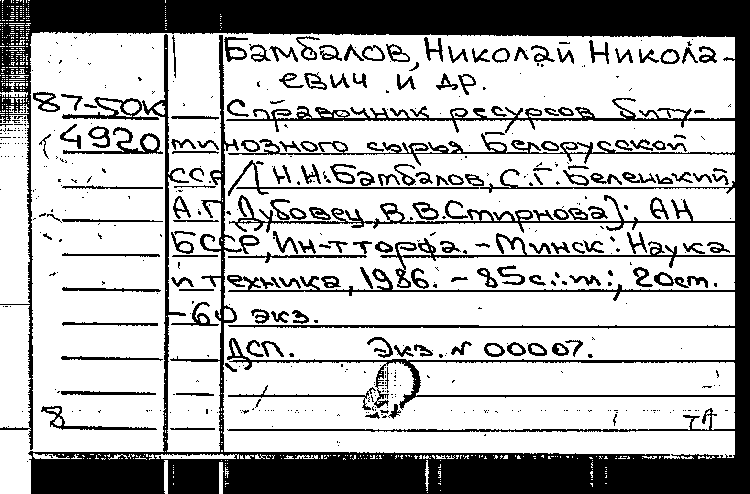 Бамбалов, Николай Никола-
евич и др.
87-50К Справочник ресурсов биту-
4920 минозного сырья Белорусской
ССР / [Н.Н. Бамбалов, С.Г. Беленький,
А.Г. Дубовец, В.В. Смирнова]; АН
БССР, Ин-т торфа. - Минск: Наука
и техника, 1986. - 85с.: ил.; 20см.
-60 экз.
ДСП. Экз. № 00007.
8 ТА